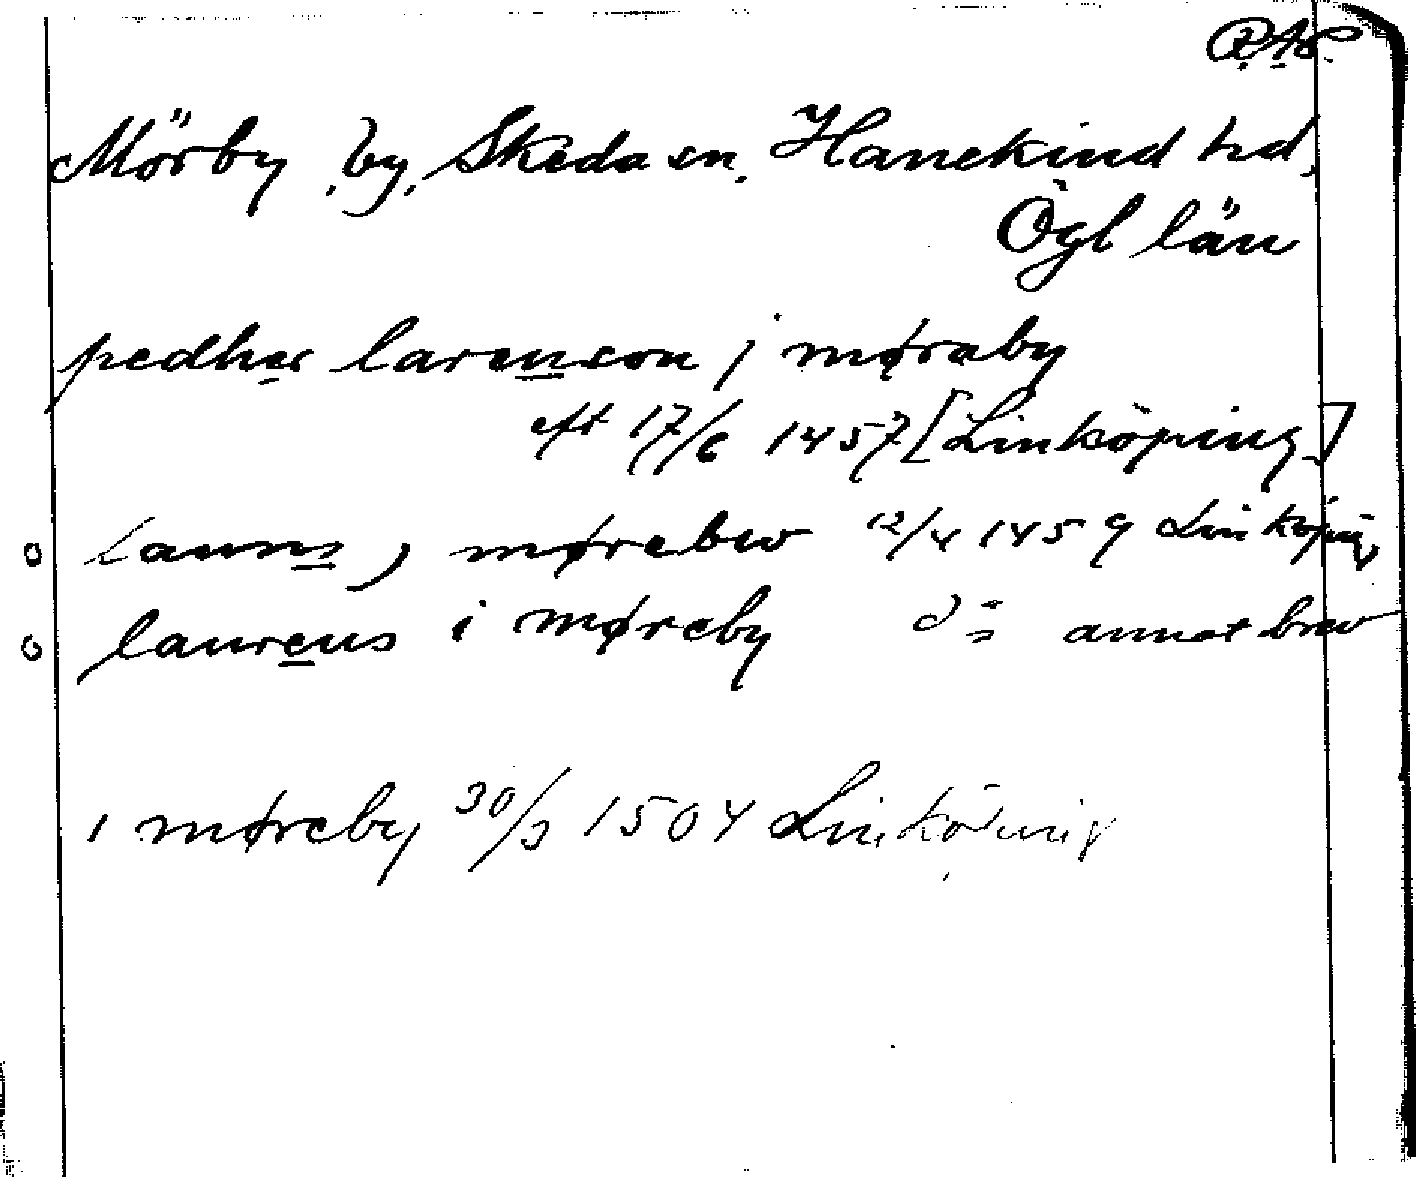 RAP.
Mörby, by, Skeda sn. Hanekind hd,
Ögl län
pedher larensson j møraby
eft 17/6 1457 [Linköping]
Laurns j mørebw 12/4 1459 Linköping
laurens i møreby d:s annat brev
i møreby 30/3 1504 Linköping